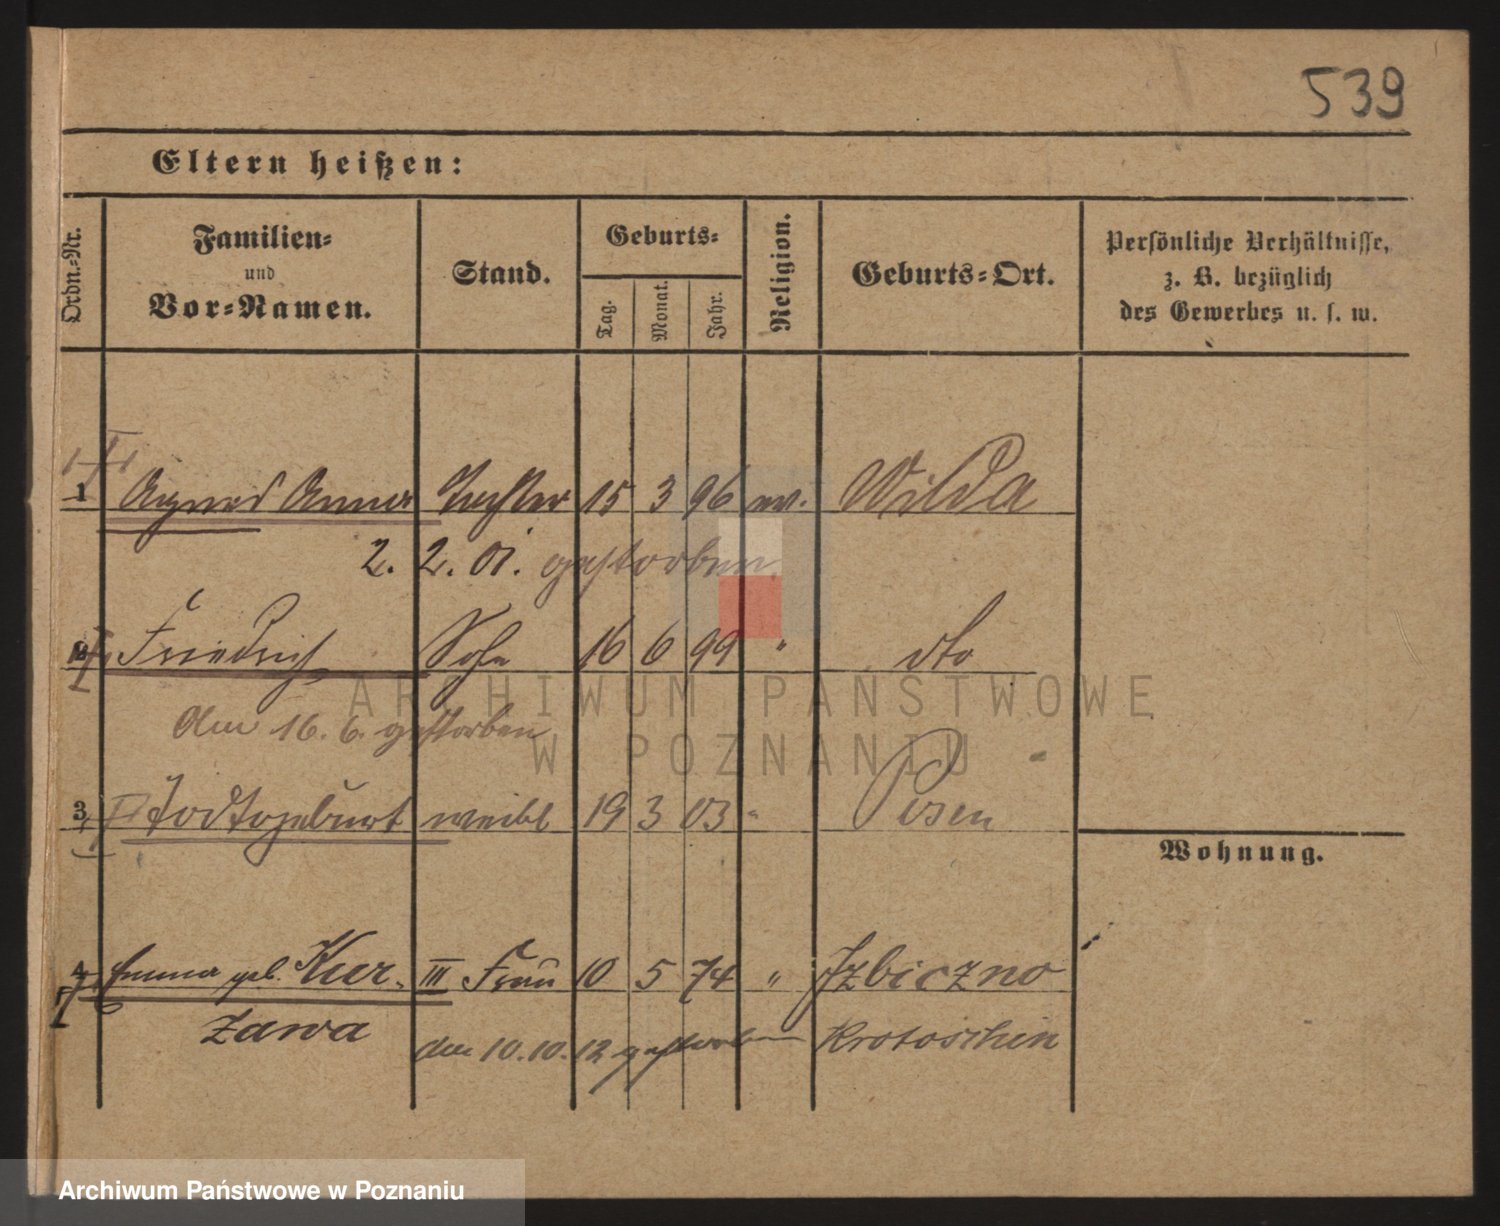 539
Eltern heißen:
Ordn.-Nr.
Familien-
und
Vor-Namen.
Stand.
Geburts-
Tag.
Monat.
Jahr.
Religion.
Geburts-Ort.
Persönliche Verhältnisse,
z. B. bezüglich
des Gewerbes u. s. w.
1 Agnes Anna Tochter 15 3 96 ev. Wilda
2. 2. 01. gestorben.
2 Friedrich Sohn 16 6 99 " dto
am 16. 6. gestorben
ARCHIWUM PAŃSTWOWE
W POZNANIU
3 Todtgeburt weibl 19 3 03 " Posen
Wohnung.
4 Emma geb. Kur- III Frau 10 5 74 " Izbiczno
zawa Krotoschin
den 10. 10. 12 gestorben
Archiwum Państwowe w Poznaniu